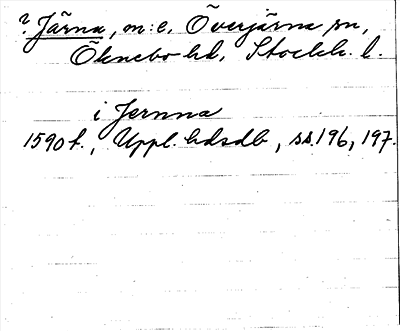 ? Järna, m:e, Överjärna sn,
Öknebo hd, Stockh. l.
i Jernna
1590 f., Uppl. hdsdb, ss. 196, 197.